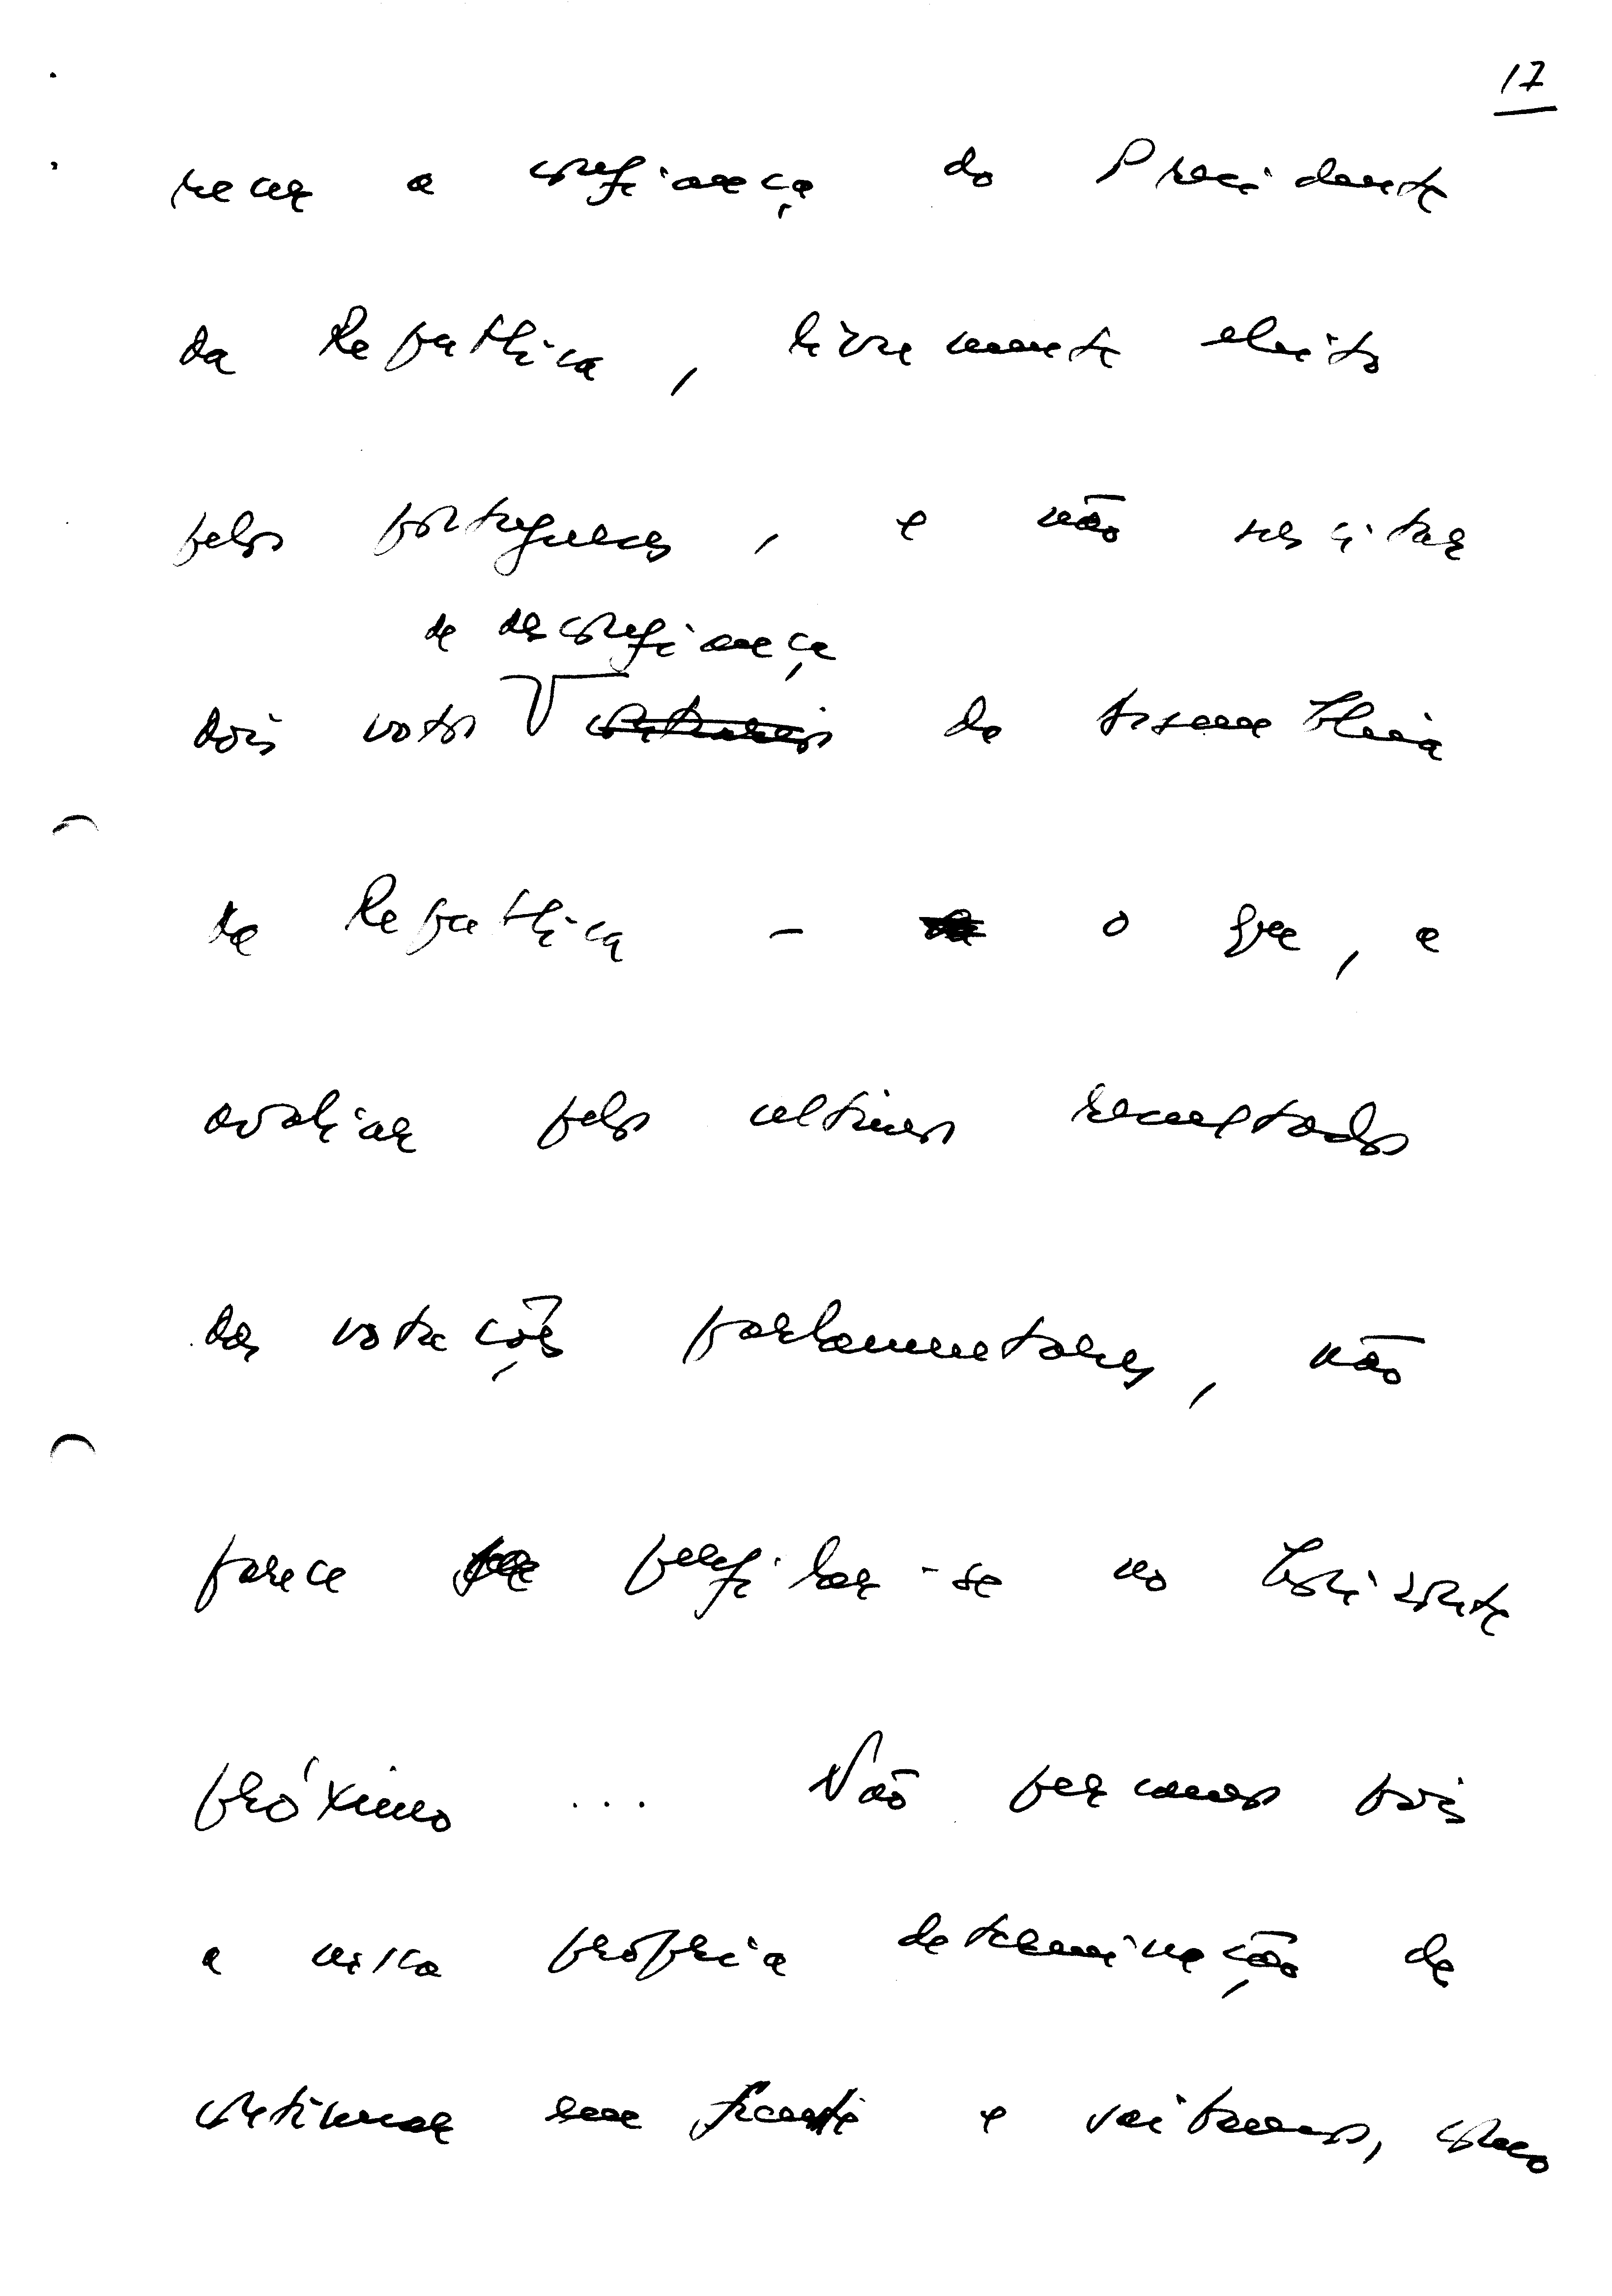 17
recer a confiança do Presidente
da República, livremente eleito
pelos portugueses, e não suscitar
de desconfiança
dois votos contrários da Assembleia
da República - o que, a
avaliar pelos ultimos resultados
das votações parlamentares, não
parece perfilar-se no horizonte
próximo ... Não percamos pois
a nossa própria determinação de
continuar em frente e saibamos, como